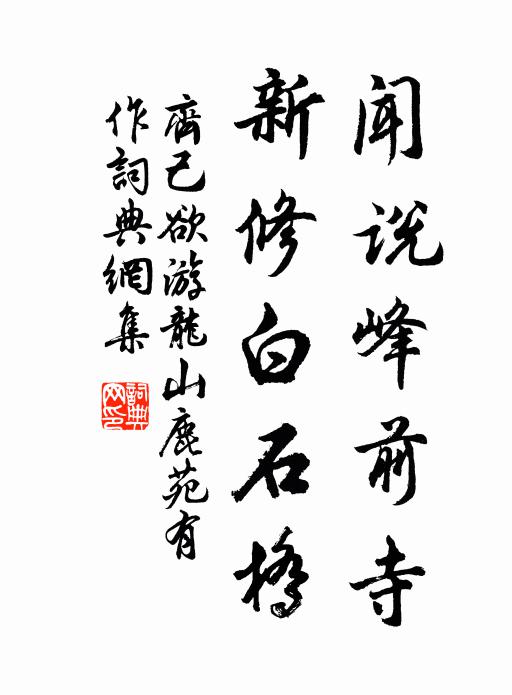 闻说峰前寺
新修白石橋
齊己欲游龍山鹿苑有
作詞典網集
詞典
网印